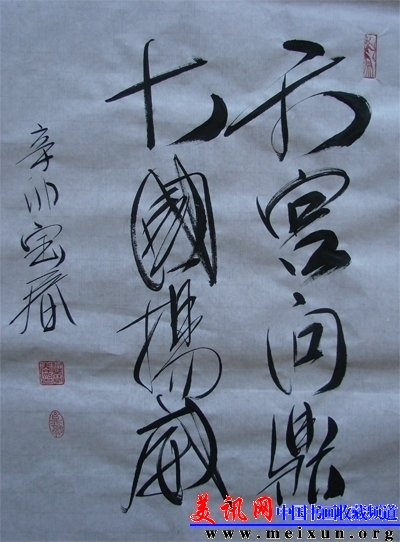 天宫问鼎
大國揚威
辛卯宝春
美讯网 中国书画收藏频道
www.meixun.org